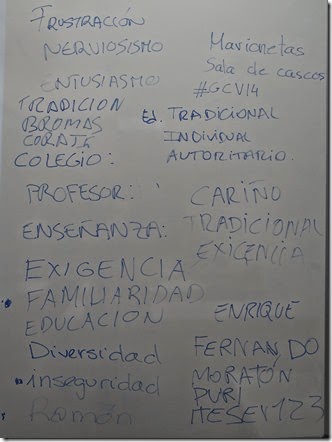 FRUSTRACCIÓN
NERVIOSISMO
ENTUSIASMO
TRADICION
BROMAS
CORAJE
COLEGIO:
PROFESOR:
ENSEÑANZA:
EXIGENCIA
FAMILIARIDAD
EDUCACION
Diversidad
inseguridad
Ramón
Marionetas
Sala de cascos
#GCV14
Ed. TRADICIONAL
INDIVIDUAL
AUTORITARIO.
CARIÑO
TRADICIONAL
EXIGENCIA
ENRIQUE
FERNANDO
MORATÓN
PURI